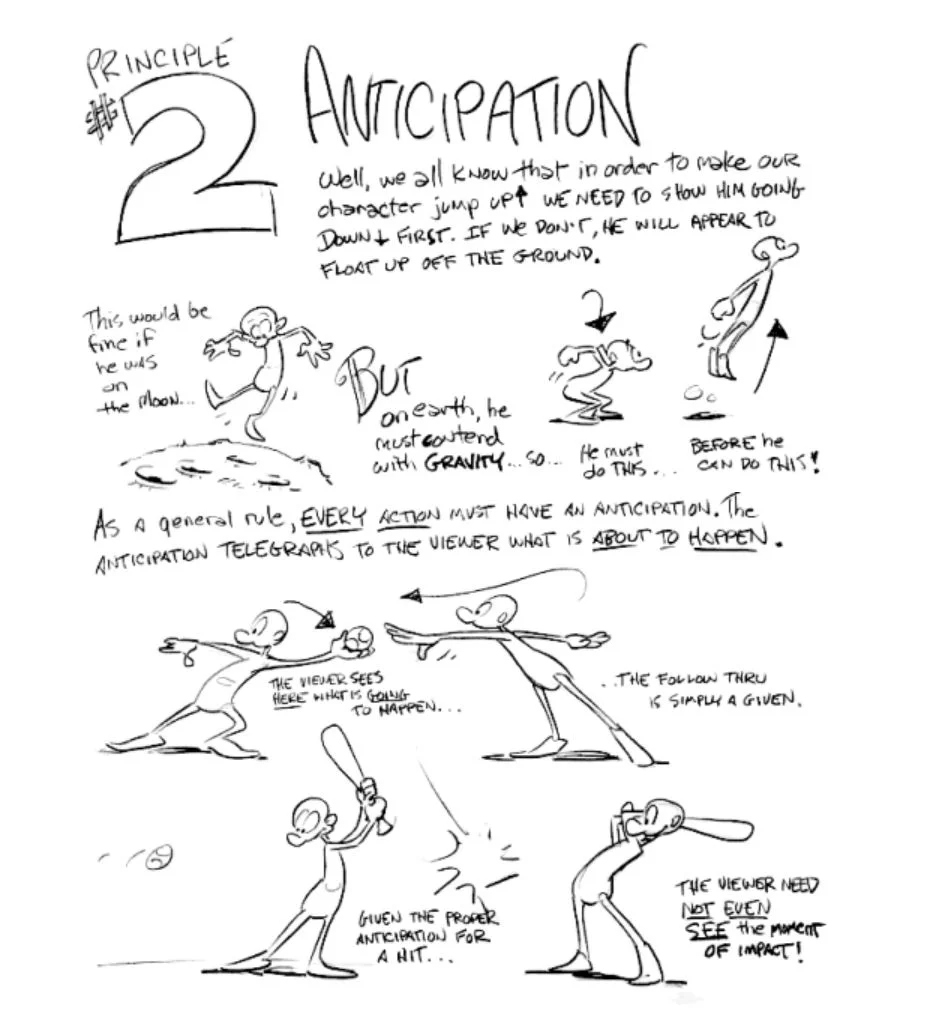 PRINCIPLE
#2
ANTICIPATION
Well, we all KNOW that in order to make our
character jump up↑ WE NEED TO SHOW HIM GOING
DOWN↓ FIRST. IF WE DON'T, HE WILL APPEAR TO
FLOAT UP OFF THE GROUND.
This would be
fine if
he was
on
the MOON...
BUT
on earth, he
must contend
with GRAVITY... SO...
He must
do THIS...
BEFORE he
CAN DO THIS!
As a general rule, EVERY ACTION MUST HAVE AN ANTICIPATION. The
ANTICIPATION TELEGRAPHS TO THE VIEWER WHAT IS ABOUT TO HAPPEN.
THE VIEWER SEES
HERE WHAT IS GOING
TO HAPPEN...
...THE FOLLOW THRU
IS SIMPLY A GIVEN.
GIVEN THE PROPER
ANTICIPATION FOR
A HIT...
THE VIEWER NEED
NOT EVEN
SEE the MOMENT
OF IMPACT!